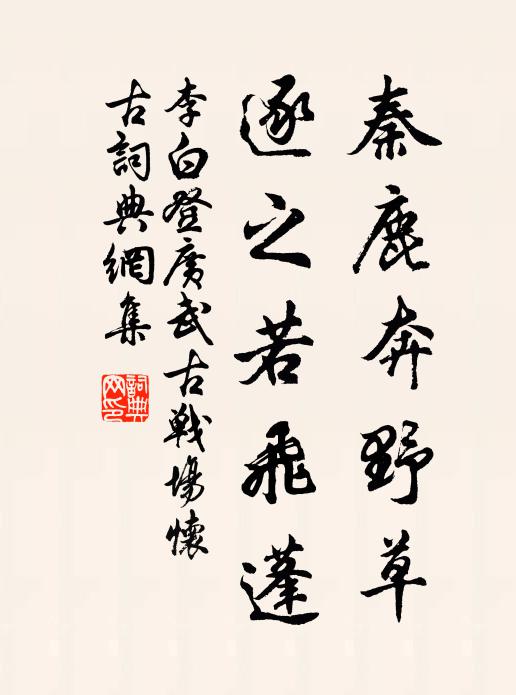 秦鹿奔野草
逐之若飛蓬
李白登廣武古戰場懷
古詞典網集
詞典網印